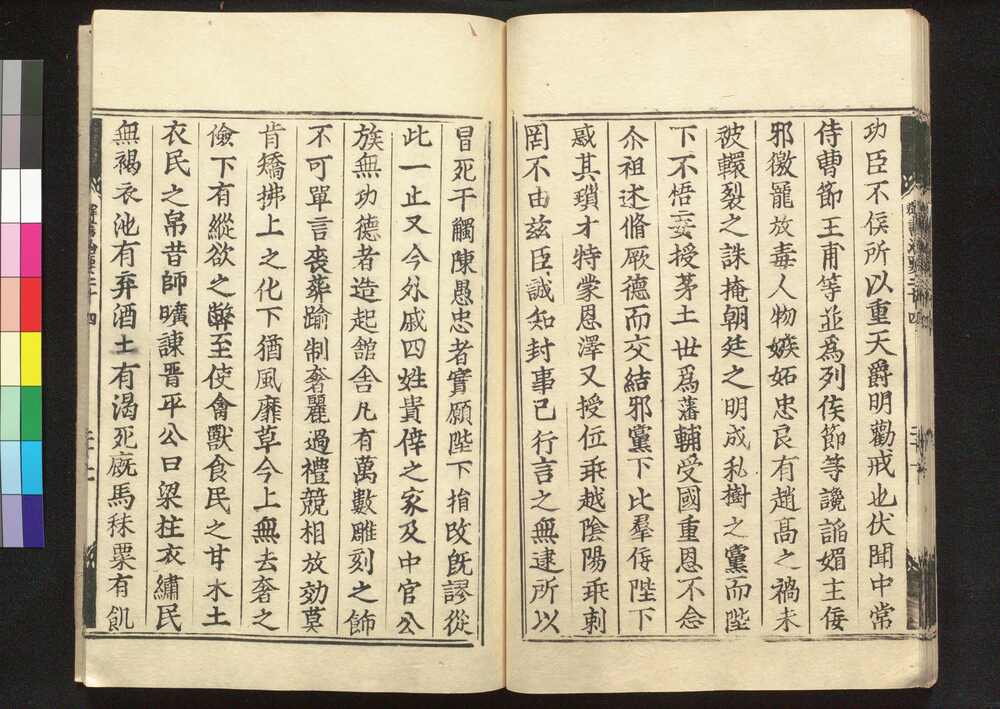 功臣不侯所以重天爵明勸戒也伏聞中常
侍曹節王甫等並爲列侯節等讒諂媚主佞
邪徼寵放毒人物嫉妬忠良有趙高之禍未
被轘裂之誅掩朝廷之明成私樹之黨而陛
下不悟妄授茅土世爲藩輔受國重恩不念
尒祖述脩厥德而交結邪黨下比羣佞陛下
惑其瑣才特蒙恩澤又授位乖越陰陽乖剌
罔不由茲臣誠知封事已行言之無逮所以
冒死干觸陳愚忠者實願陛下損改既謬從
此一止又今外戚四姓貴倖之家及中官公
族無功德者造起館舍凡有萬數雕刻之飾
不可單言喪葬踰制奢麗過禮競相放効莫
肯矯拂上之化下猶風靡草今上無去奢之
儉下有縱欲之弊至使禽獸食民之甘木土
衣民之帛昔師曠諫晋平公曰梁柱衣繡民
無褐衣池有弃酒土有渴死廐馬秣粟有飢